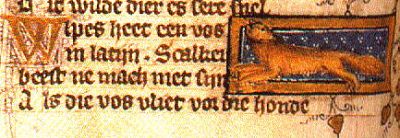 D it wilde dier es sere snel
Wlpes heet een vos
in latijn . Scalker
beest ne mach niet sijn
A ls die vos vliet vor die honde